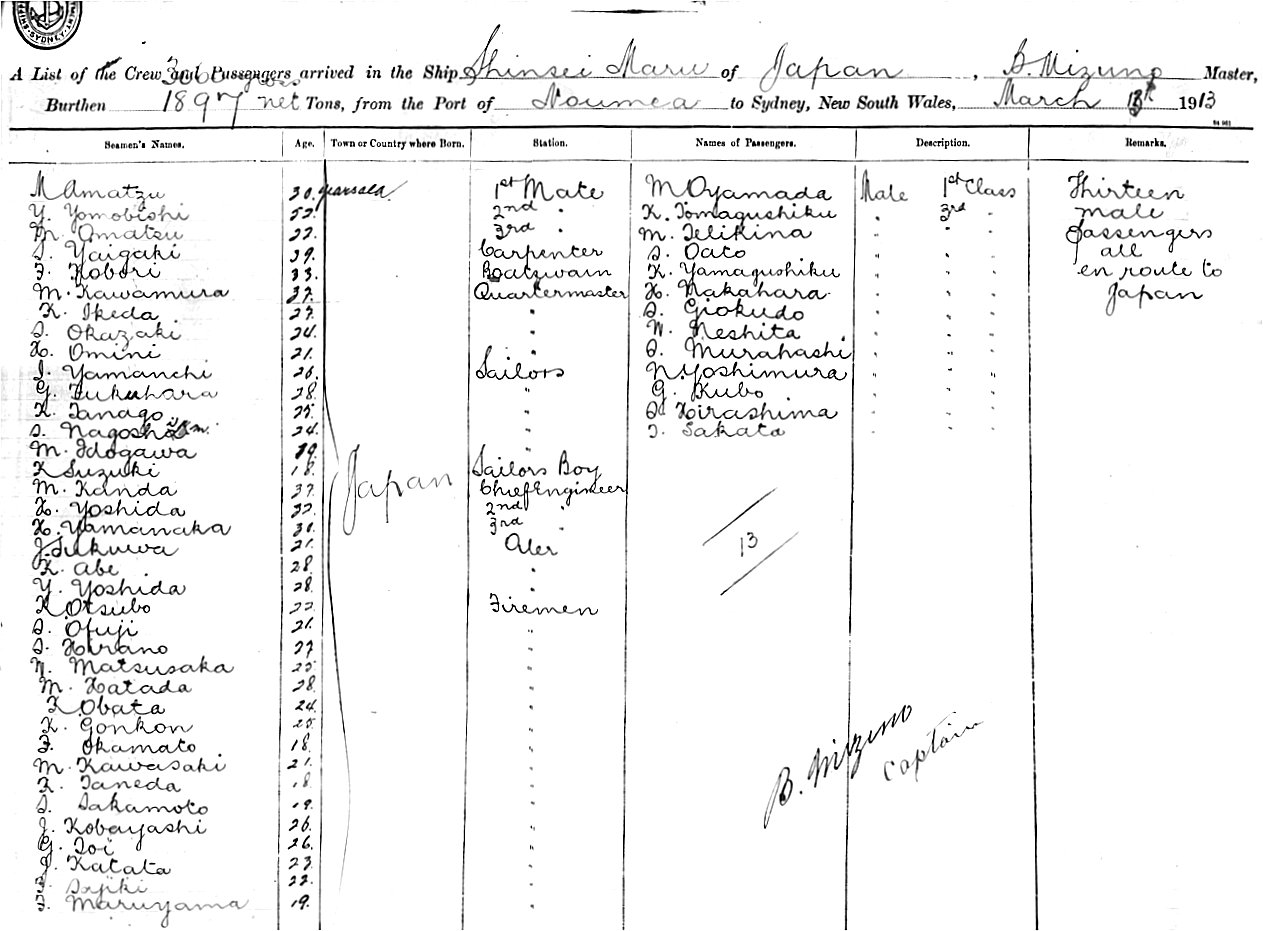 SYDNEY
A List of the Crew and Passengers arrived in the Ship Shinsei Maru of Japan, B. Mizuno Master,
Burthen 1897 net Tons, from the Port of Noumea to Sydney, New South Wales, March 13th 1913
Seamen's Names. Age. Town or Country where Born. Station. Names of Passengers. Description. Remarks.
M Amatzu 30 years old 1st Mate M Oyamada Male 1st Class Thirteen
Y. Yomobishi 52. 2nd " K. Tomagushiku " 3rd " male
M. Omatsu 22. 3rd " M. Telikina " " " passengers
S. Yaigaki 39. Carpenter S. Oato " " " all
F. Kobori 33. Boatswain K. Yamagushiku " " " en route to
M. Kawamura 37. Quartermaster H. Nakahara " " " Japan
K. Ikeda 27. " S. Giokudo " " "
S. Okazaki 24. " N. Neshita " " "
H. Omini 21. " S. Murahashi " " "
I. Yamanchi 26. Sailors N. Yoshimura " " "
G. Fukuhara 28. " G. Kubo " " "
K. Tanago 25. " S. Hirashima " " "
S. Nagosho 24. " T. Sakata " " "
M. Idogawa 19. "
K Suzuki 18. Japan Sailors Boy
M. Kanda 37. Chief Engineer
H. Yoshida 32. 2nd "
H. Yamanaka 30. 3rd "
J. Sukuwa 21. Oler 13
K. Abe 28. "
Y. Yoshida 28. "
K Otsubo 22. Firemen
S. Ofuji 21. "
S. Hirano 27 "
N. Matsusaka 25 "
M. Hatada 28. "
K Obata 24. "
K. Gonkon 25. "
F. Okamato 18. "
M. Kawasaki 21. " B. Mizuno
K. Taneda 18. " Captain
S. Sakamoto 19. "
J. Kobayashi 26. "
G. Toi 26. "
J. Katata 23 "
22. "
F. Maruyama 19. "